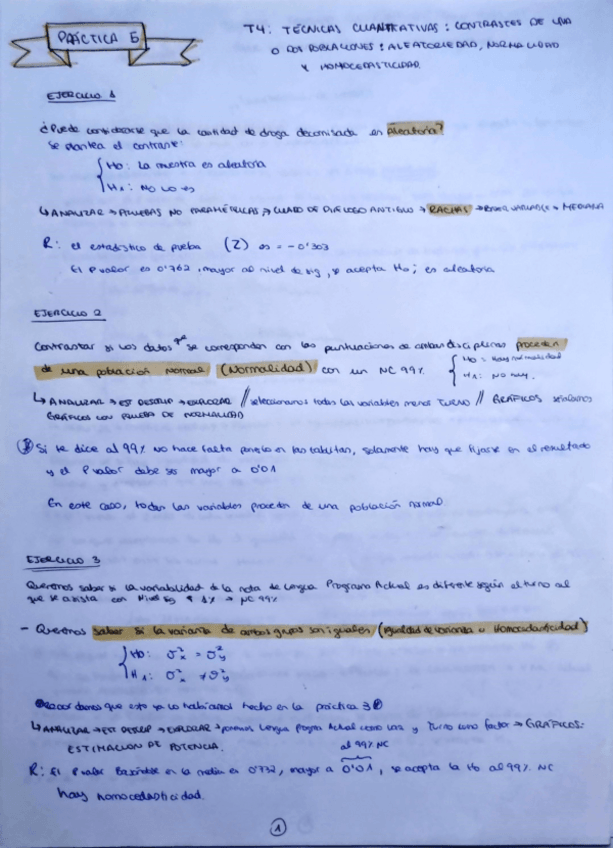 PRÁCTICA 5
T4: TÉCNICAS CUANTITATIVAS: CONTRASTES DE UNA
O DOS POBLACIONES: ALEATORIEDAD, NORMALIDAD
Y HOMOCEDASTICIDAD.
EJERCICIO 1
¿Puede considerarse que la cantidad de droga decomisada es aleatoria?
Se plantea el contraste:
H0: La muestra es aleatoria
H1: NO LO es
↳ ANALIZAR → PRUEBAS NO PARAMÉTRICAS → CUADRO DE DIÁLOGO ANTIGUO → RACHAS → VARIABLE → MEDIANA
R: el estadístico de prueba (Z) es = -0'303
El P valor es 0'762, mayor al nivel de sig, se acepta H0; es aleatoria
EJERCICIO 2
Contrastar si los datos que se corresponden con las puntuaciones de ambas disciplinas proceden
de una población normal (Normalidad) con un NC 99%.
H0 = Hay normalidad
H1: No hay.
↳ ANALIZAR → EST DESCRIP → EXPLORAR // seleccionamos todas las variables menos TURNO // GRÁFICOS
GRÁFICOS CON PRUEBA DE NORMALIDAD
Si te dice al 99% no hace falta ponerlo en las casillitas, solamente hay que fijarse en el resultado
y el P valor debe ser mayor a 0'01
En este caso, todas las variables proceden de una población normal
EJERCICIO 3
Queremos saber si la variabilidad de la nota de Lengua Programa Actual es diferente según el turno al
que se asista con Nivel sig 1% → NC 99%
- Queremos saber si la varianza de ambos grupos son iguales (Igualdad de varianza u Homocedasticidad)
H0: σ²x = σ²y
H1: σ²x ≠ σ²y
Recordamos que esto ya lo habíamos hecho en la práctica 3
↳ ANALIZAR → EST DESCRIP → EXPLORAR → ponemos Lengua Progra Actual como y Turno como factor → GRÁFICOS:
ESTIMACION DE POTENCIA.
al 99% NC
R: El P valor Basándose en la media es 0'732, mayor a 0'01, se acepta la H0 al 99% NC
hay homocedasticidad.
1